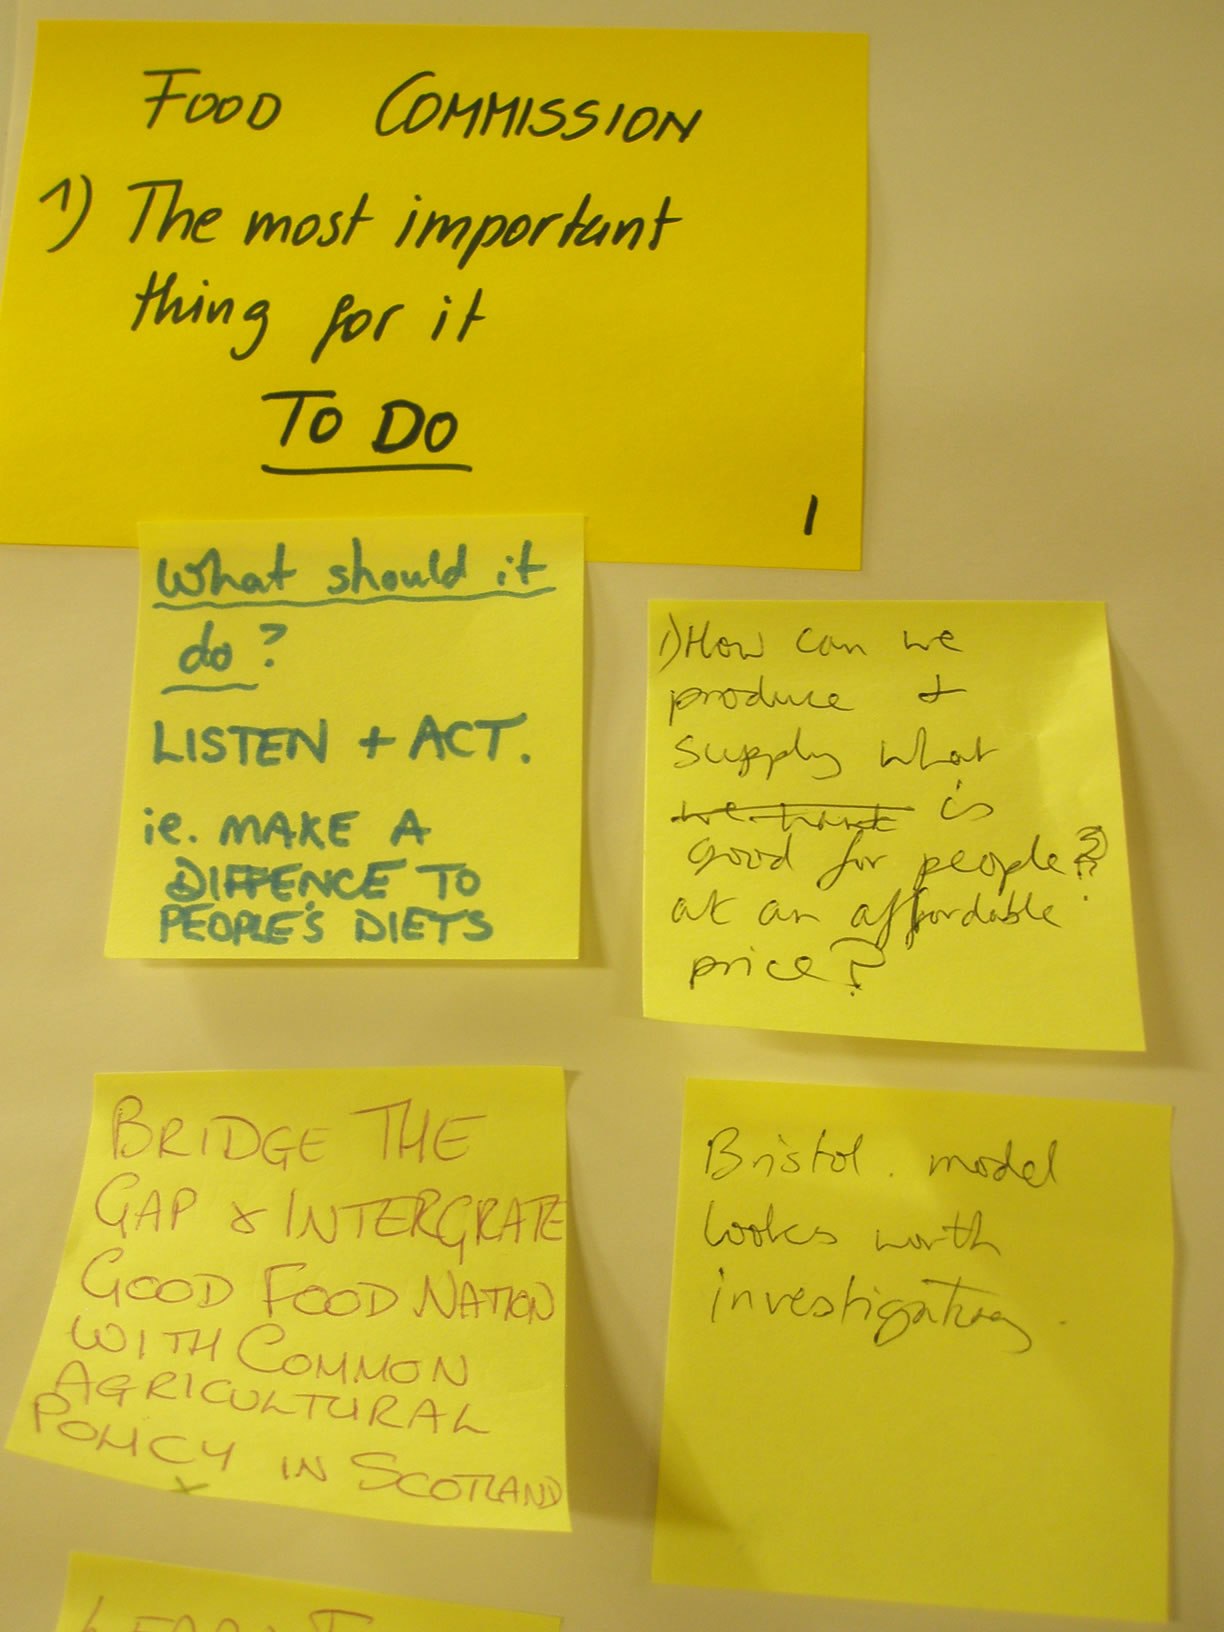 FOOD COMMISSION
1) The most important
thing for it
TO DO
1
What should it
do?
LISTEN + ACT.
ie. MAKE A
DIFFENCE TO
PEOPLE'S DIETS
1) How can we
produce +
supply what
we want is
good for people?
at an affordable
price?
BRIDGE THE
GAP & INTERGRATE
GOOD FOOD NATION
WITH COMMON
AGRICULTURAL
POLICY IN SCOTLAND
Bristol. model
looks worth
investigating.